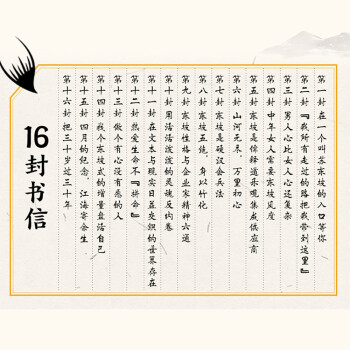 第一封 在一个叫苏东坡的入口等你
第二封 『我所有走过的路把我带到这里』
第三封 男人心比女人心还复杂
第四封 中年女人需要东坡风度
第五封 东坡是儒释道乐观集成供应商
第六封 山河无末，万里初心
第七封 东坡是硬汉会兵法
第八封 东坡五绝，身以竹化
第九封 东坡性格与企业家精神六道
第十封 用活活泼泼的灵魂反内卷
第十一封 在文本与现实日益交织的世界存在
第十二封 热爱生命不『拼命』
第十三封 做个有心没有患的人
第十四封 我个东坡式的增量盘活自己
第十五封 四月的纪念，江海寄余生
第十六封 把三十岁过三十年
16封书信